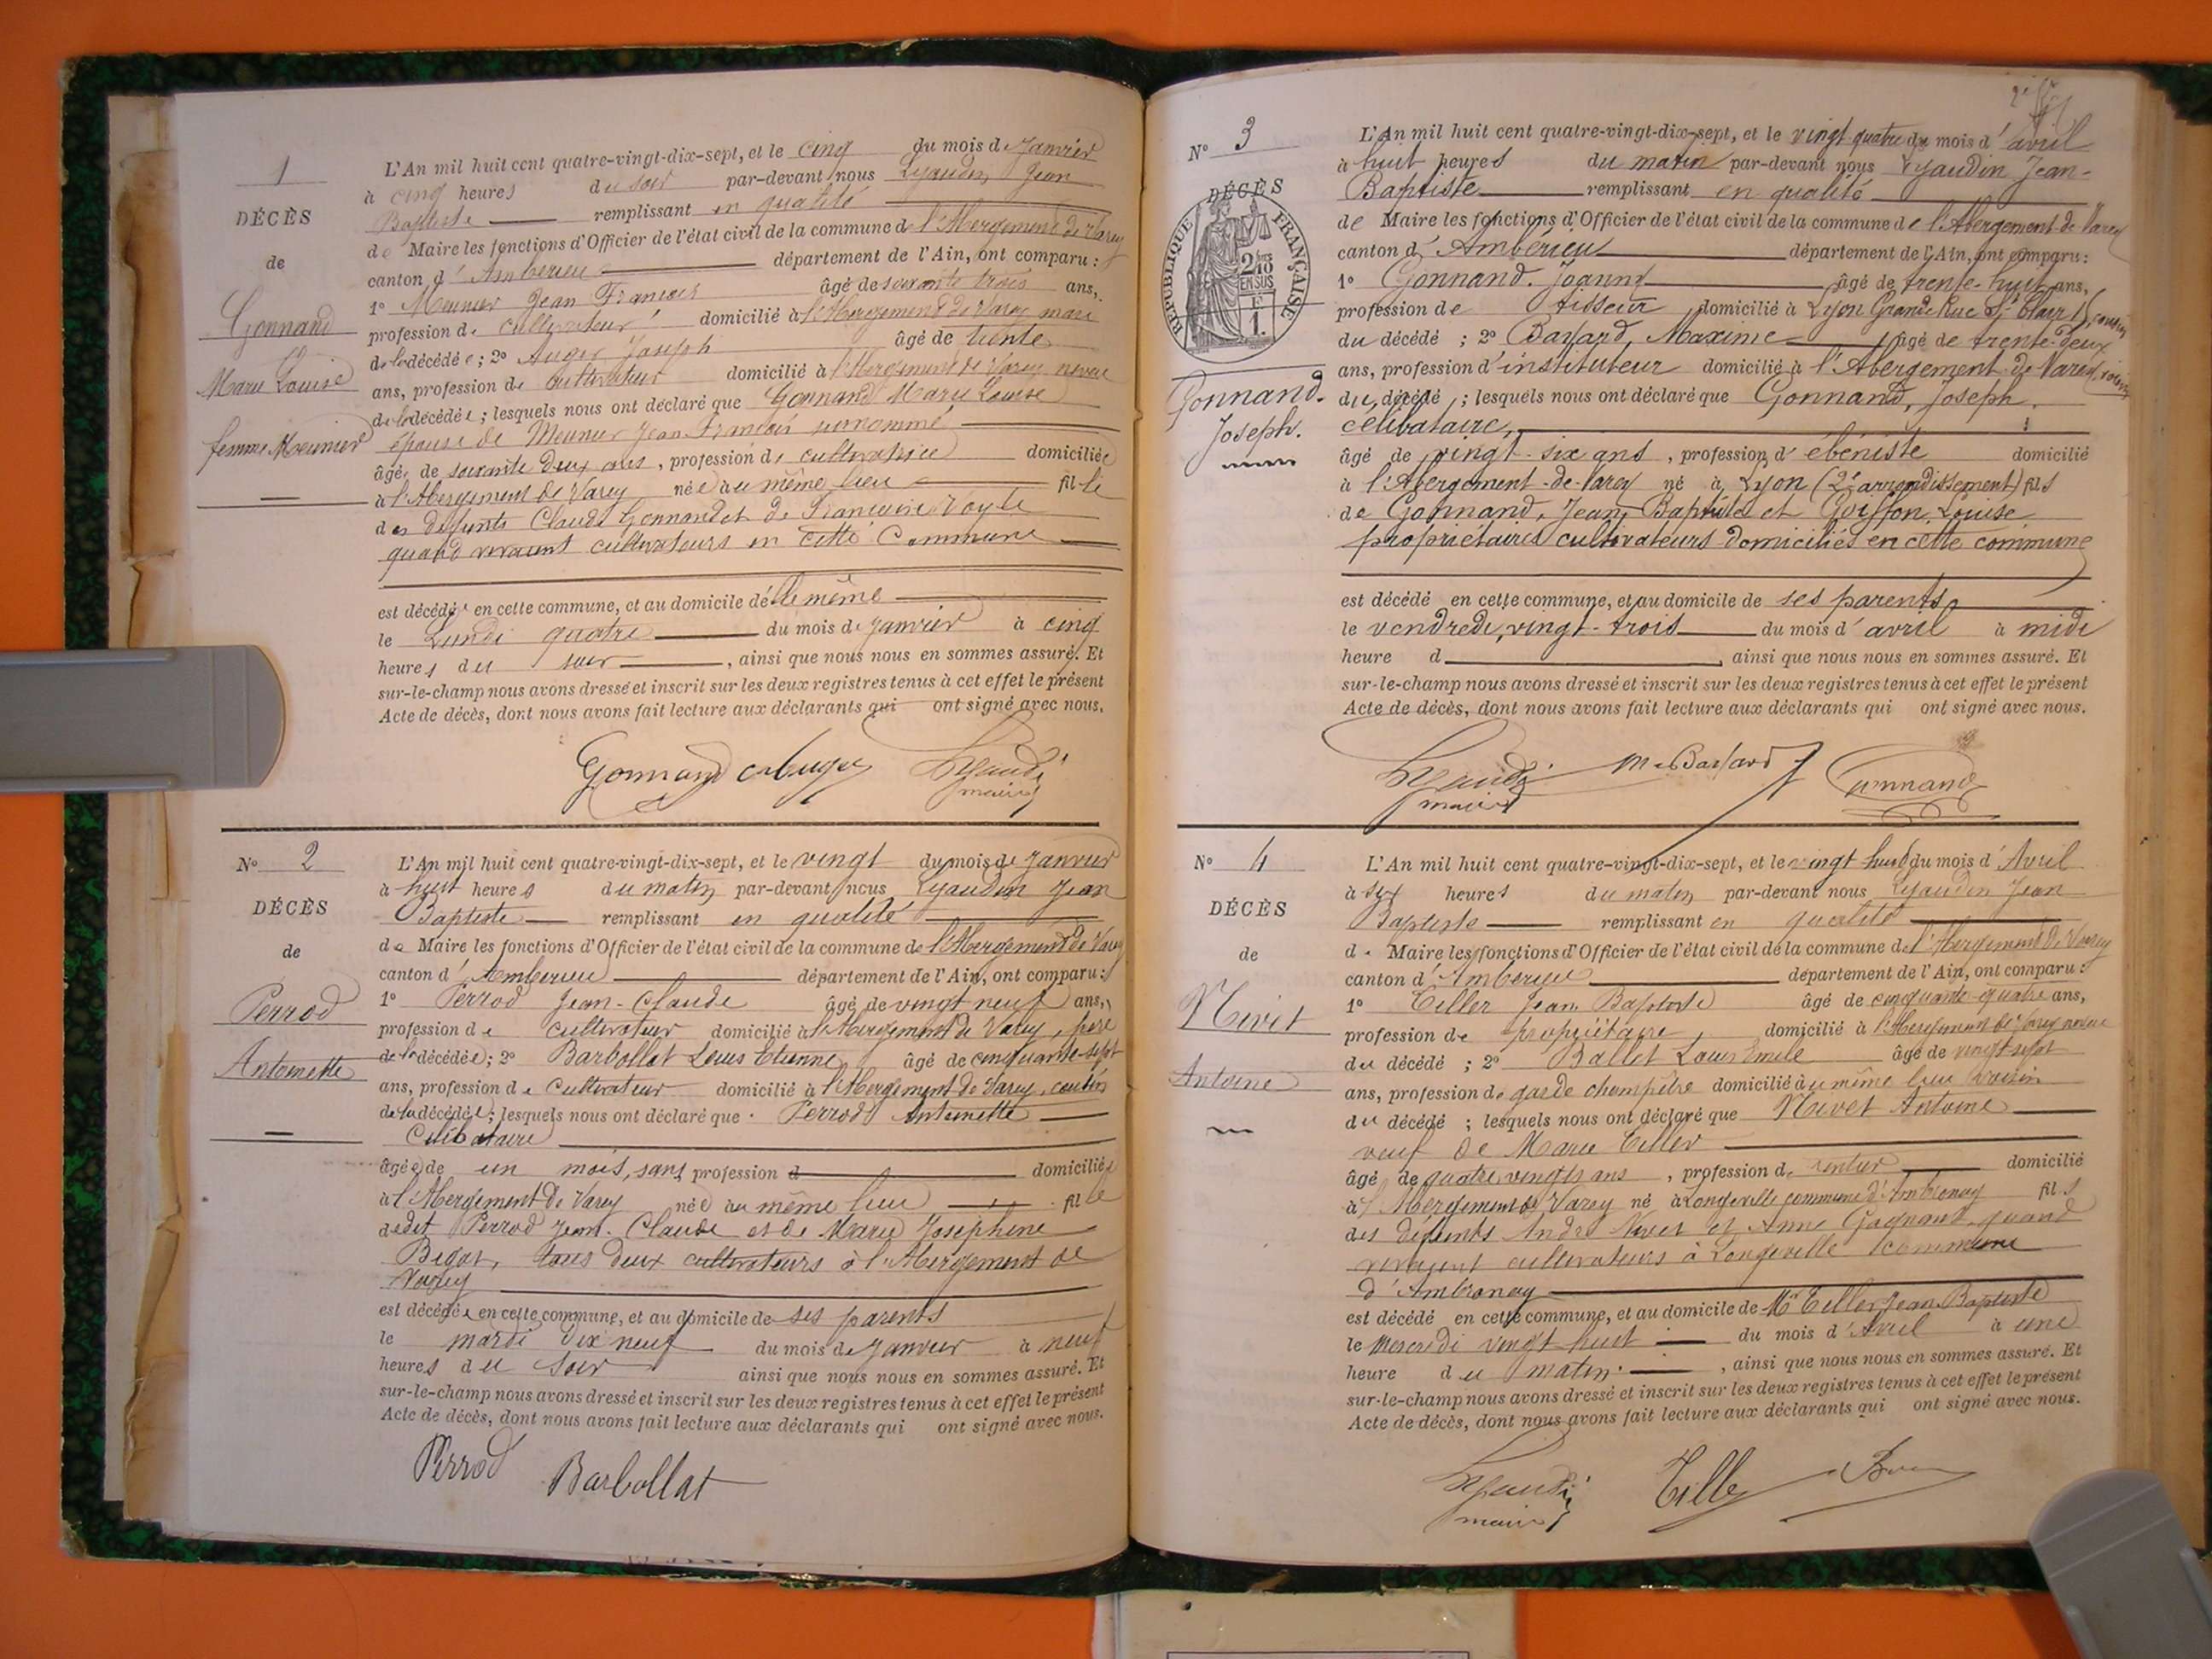 1
DÉCÈS
de
Gonnand
Marie Louise
femme Meunier
L'An mil huit cent quatre-vingt-dix-sept, et le cinq du mois de Janvier
à cinq heures du soir par-devant nous Lyaudin Jean
Baptiste remplissant en qualité
de Maire les fonctions d'Officier de l'état civil de la commune de l'Abergement de Varey
canton d'Amberieu département de l'Ain, ont comparu :
1° Meunier Jean François âgé de soixante trois ans,
profession de cultivateur domicilié à l'Abergement de Varey mari
de la décédée ; 2° Auger Joseph âgé de trente
ans, profession de cultivateur domicilié à l'Abergement de Varey neveu
de la décédée ; lesquels nous ont déclaré que Gonnand Marie Louise
épouse de Meunier Jean François surnommé
âgée de soixante deux ans, profession de cultivatrice domiciliée
à l'Abergement de Varey née au même lieu fille
des défunts Claude Gonnand et de Françoise
quand vivaient cultivateurs en cette Commune
est décédée en cette commune, et au domicile de le même
le Lundi quatre du mois de Janvier à cinq
heures du soir, ainsi que nous nous en sommes assuré. Et
sur-le-champ nous avons dressé et inscrit sur les deux registres tenus à cet effet le présent
Acte de décès, dont nous avons fait lecture aux déclarants qui ont signé avec nous.
Gonnand Lyaudin
maire
N° 2
DÉCÈS
de
Perrod
Antoinette
L'An mil huit cent quatre-vingt-dix-sept, et le vingt du mois de Janvier
à huit heures du matin par-devant nous Lyaudin Jean
Baptiste remplissant en qualité
de Maire les fonctions d'Officier de l'état civil de la commune de l'Abergement de Varey
canton d'Amberieu département de l'Ain, ont comparu :
1° Perrod Jean-Claude âgé de vingt neuf ans,
profession de cultivateur domicilié à l'Abergement de Varey, père
de la décédée ; 2° Barbollat Louis Etienne âgé de cinquante-sept
ans, profession de Cultivateur domicilié à l'Abergement de Varey, cousin
de la décédée ; lesquels nous ont déclaré que Perrod Antoinette
Célibataire
âgée de un mois, sans profession d domiciliée
à l'Abergement de Varey née au même lieu fille
dudit Perrod Jean-Claude et de Marie Josephine
Bigot, tous deux cultivateurs à l'Abergement de
Varey
est décédée en cette commune, et au domicile de ses parents
le mardi dix neuf du mois de Janvier à neuf
heures du soir ainsi que nous nous en sommes assuré. Et
sur-le-champ nous avons dressé et inscrit sur les deux registres tenus à cet effet le présent
Acte de décès, dont nous avons fait lecture aux déclarants qui ont signé avec nous.
Perrod Barbollat
N° 3
DÉCÈS
RÉPUBLIQUE FRANÇAISE
2/10 EN SUS
1F
Gonnand.
Joseph.
L'An mil huit cent quatre-vingt-dix-sept, et le vingt quatre du mois d'avril
à huit heures du matin par-devant nous Lyaudin Jean-
Baptiste remplissant en qualité
de Maire les fonctions d'Officier de l'état civil de la commune de l'Abergement de Varey
canton d'Amberieu département de l'Ain, ont comparu :
1° Gonnand. Joanny âgé de trente-huit ans,
profession de tisseur domicilié à Lyon Grande Rue St Clair cousin
du décédé ; 2° Bayard, Maxime âgé de trente-deux
ans, profession d'instituteur domicilié à l'Abergement de Varey, voisin
du décédé ; lesquels nous ont déclaré que Gonnand, Joseph,
célibataire,
âgé de vingt-six ans, profession d'ébéniste domicilié
à l'Abergement-de-Varey né à Lyon (2e arrondissement) fils
de Gonnand, Jean-Baptiste et Goiffon, Louise
propriétaires cultivateurs domiciliés en cette commune
est décédé en cette commune, et au domicile de ses parents
le vendredi, vingt-trois du mois d'avril à midi
heure d , ainsi que nous nous en sommes assuré. Et
sur-le-champ nous avons dressé et inscrit sur les deux registres tenus à cet effet le présent
Acte de décès, dont nous avons fait lecture aux déclarants qui ont signé avec nous.
Lyaudin Gonnand
maire
N° 4
DÉCÈS
de
Nivet
Antoine
L'An mil huit cent quatre-vingt-dix-sept, et le vingt huit du mois d'Avril
à six heures du matin par-devant nous Lyaudin Jean
Baptiste remplissant en qualité
de Maire les fonctions d'Officier de l'état civil de la commune de l'Abergement de Varey
canton d'Amberieu département de l'Ain, ont comparu :
1° Tiller Jean Baptiste âgé de cinquante-quatre ans,
profession de propriétaire, domicilié à l'Abergement de Varey neveu
du décédé ; 2° Ballet Louis Emile âgé de vingt sept
ans, profession de garde champêtre domicilié au même lieu voisin
du décédé ; lesquels nous ont déclaré que Nivet Antoine
veuf de Marie Tiller
âgé de quatre vingts ans, profession de rentier domicilié
à l'Abergement de Varey né à Longeville commune d'Ambronay fils
des défunts André Nivet et Anne Gagnant quand
vivaient cultivateurs à Longeville commune
d'Ambronay
est décédé en cette commune, et au domicile de Mr Tiller Jean Baptiste
le Mercredi vingt huit du mois d'Avril à une
heure du matin, ainsi que nous nous en sommes assuré. Et
sur-le-champ nous avons dressé et inscrit sur les deux registres tenus à cet effet le présent
Acte de décès, dont nous avons fait lecture aux déclarants qui ont signé avec nous.
Lyaudin Tiller
maire